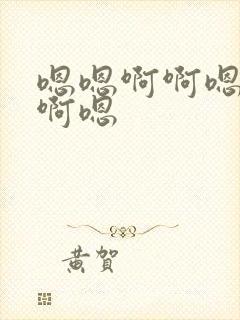 嗯嗯啊啊嗯
啊嗯
黄贺